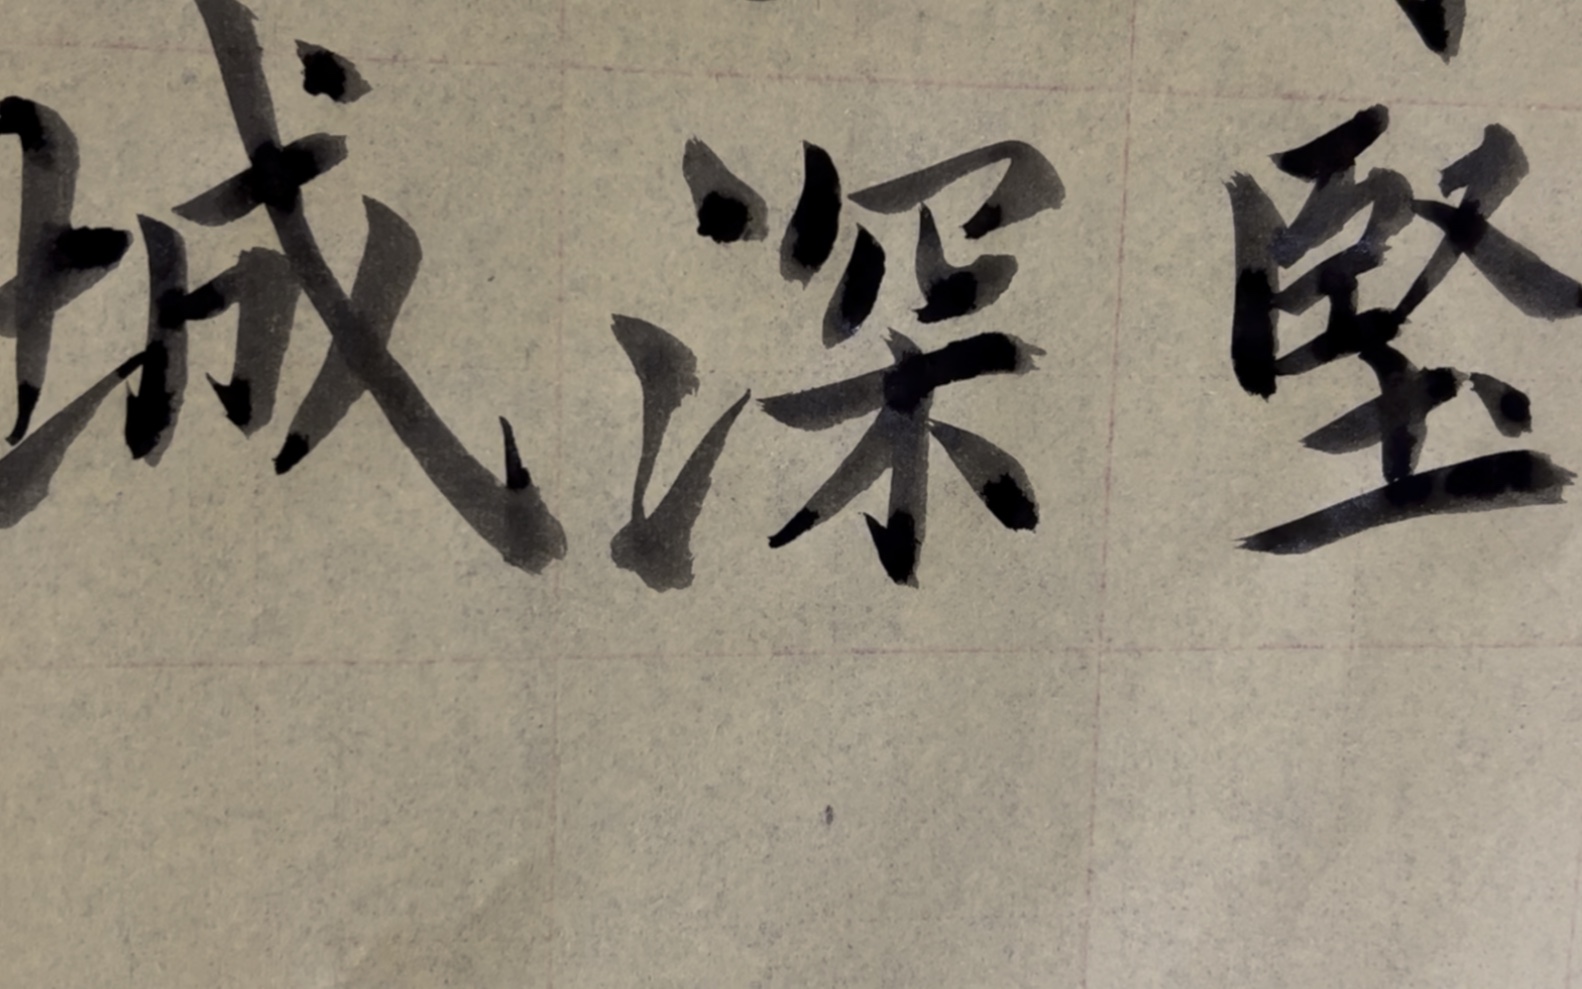 堅
深
城